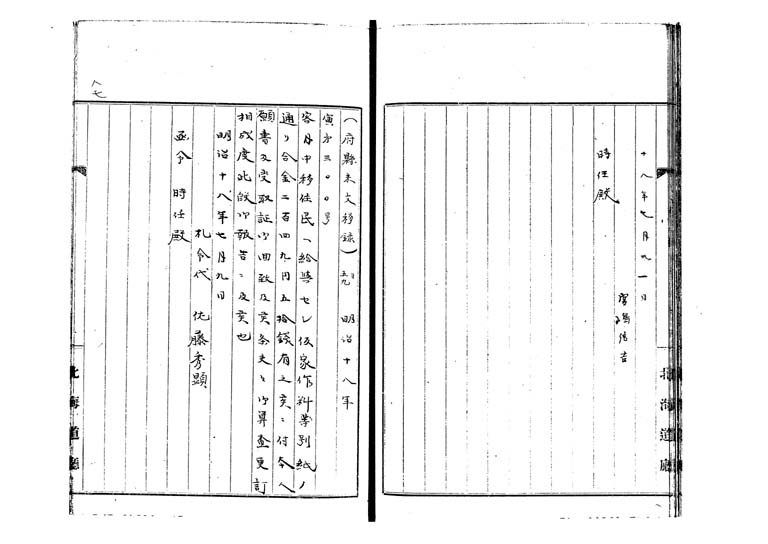 十八年七月九一日
時任殿
廣瀬信吉
北海道廳
(府縣来文移録) 五九 明治十八年
寅才三〇〇号
客月中移住民ヘ給與セシ仮家作料等別紙ノ
通リ合金二百四九円五拾錢有之候ニ付本人
願書及受取証御回致及候条夫々御算査更訂
相成度此段御報告ニ及候也
明治十八年七月九日
札令代 佐藤秀顕
函令 時任殿
八七
北海道廳